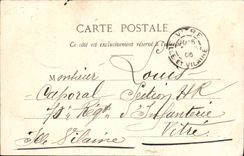 CARTE POSTALE
Ce côté est exclusivement réservé à l'adresse
VITRÉ
ILLE ET VILAINE
Monsieur Louis
Caporal Section HR
70e Régt d'Infanterie
Vitré
Ille Vilaine